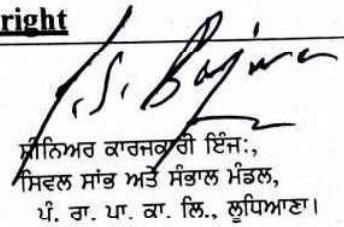 right
ਸੀਨਿਅਰ ਕਾਰਜਕਾਰੀ ਇੰਜ:,
ਸਿਵਲ ਸਾਂਭ ਅਤੇ ਸੰਭਾਲ ਮੰਡਲ,
ਪੰ. ਰਾ. ਪਾ. ਕਾ. ਲਿ., ਲੁਧਿਆਣਾ।